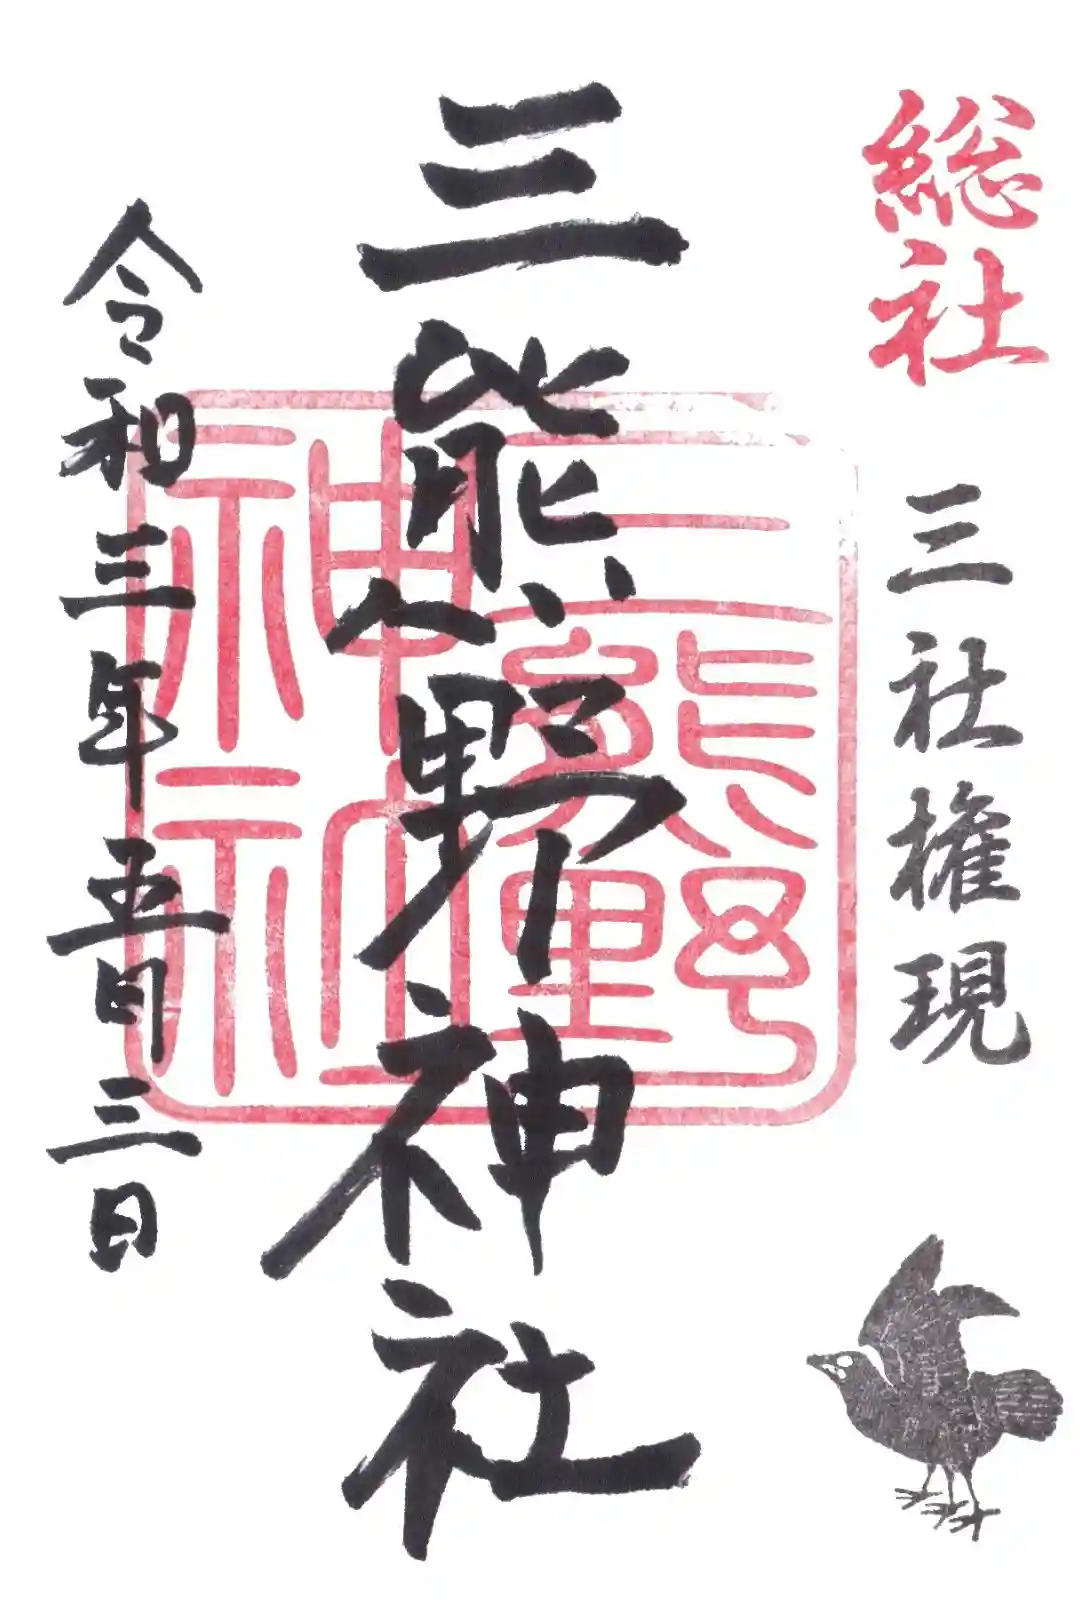 総社
三社権現
三熊野神社
三熊野神社
令和三年五月三日